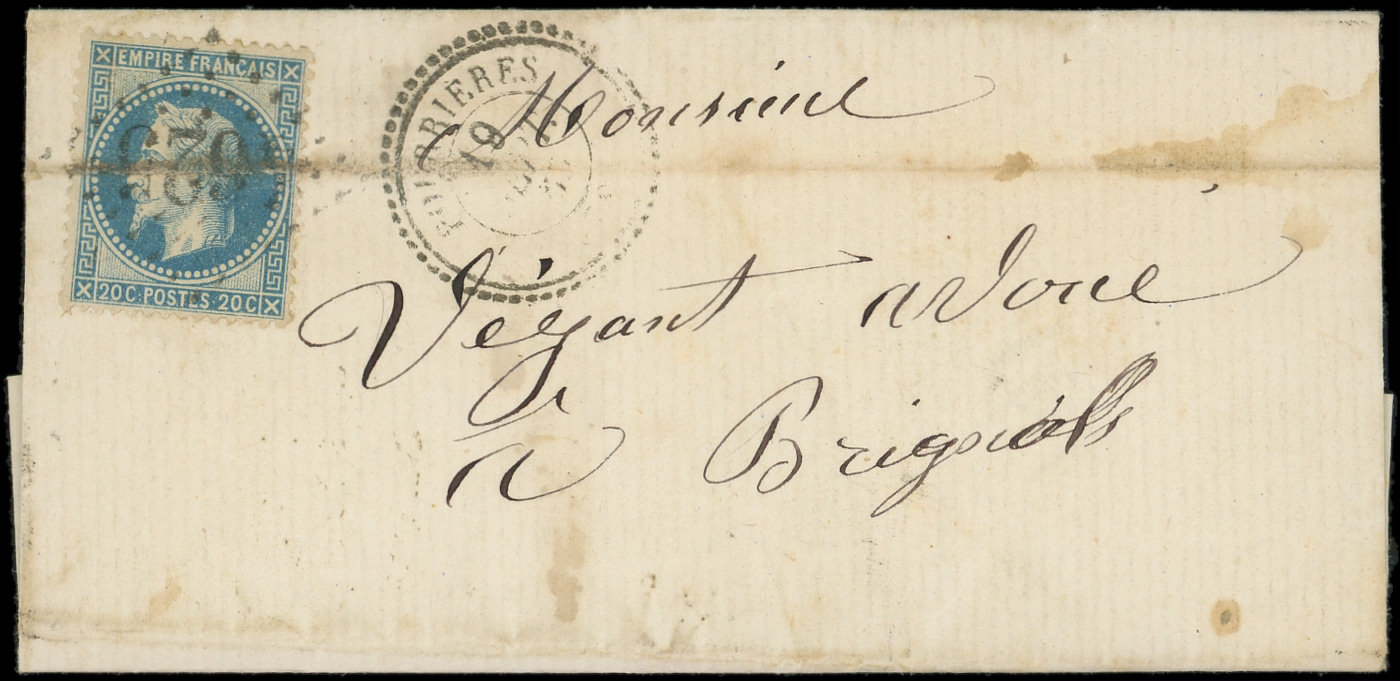 EMPIRE FRANÇAIS
20 C. POSTES 20 C
POURRIÈRES
19
Monsieur
Végant avoué
a Brignoles